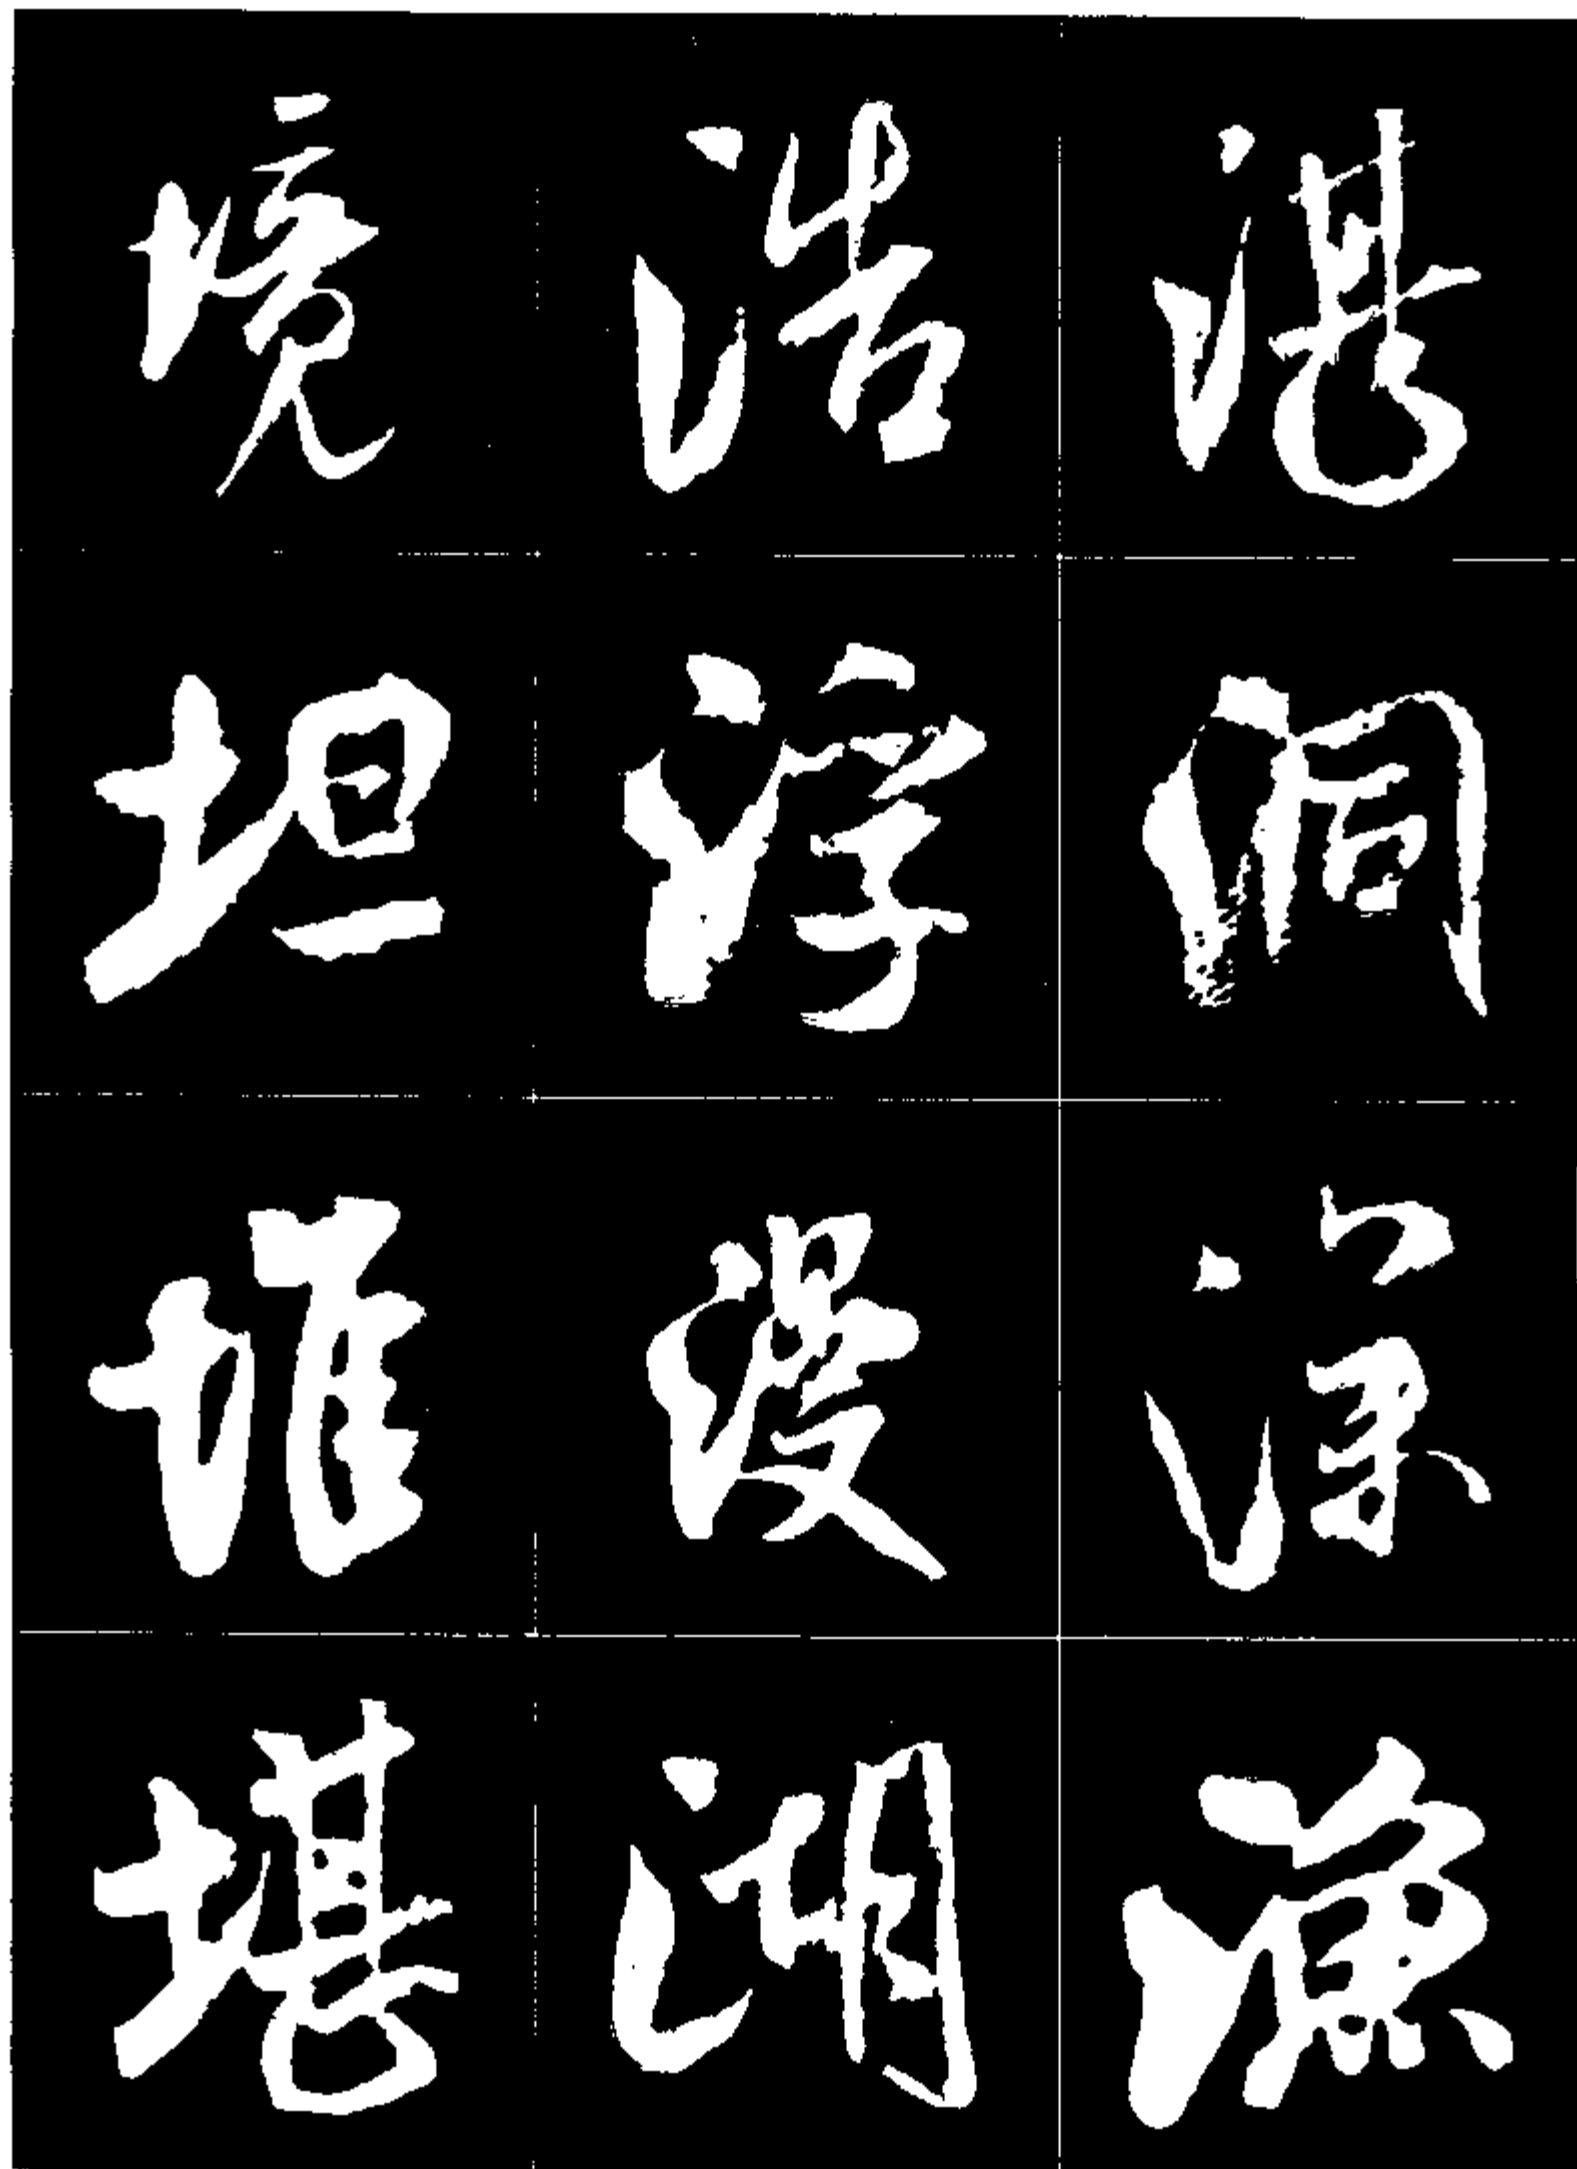 湛洞深漁
浩浮漫湖
境坦堆堪